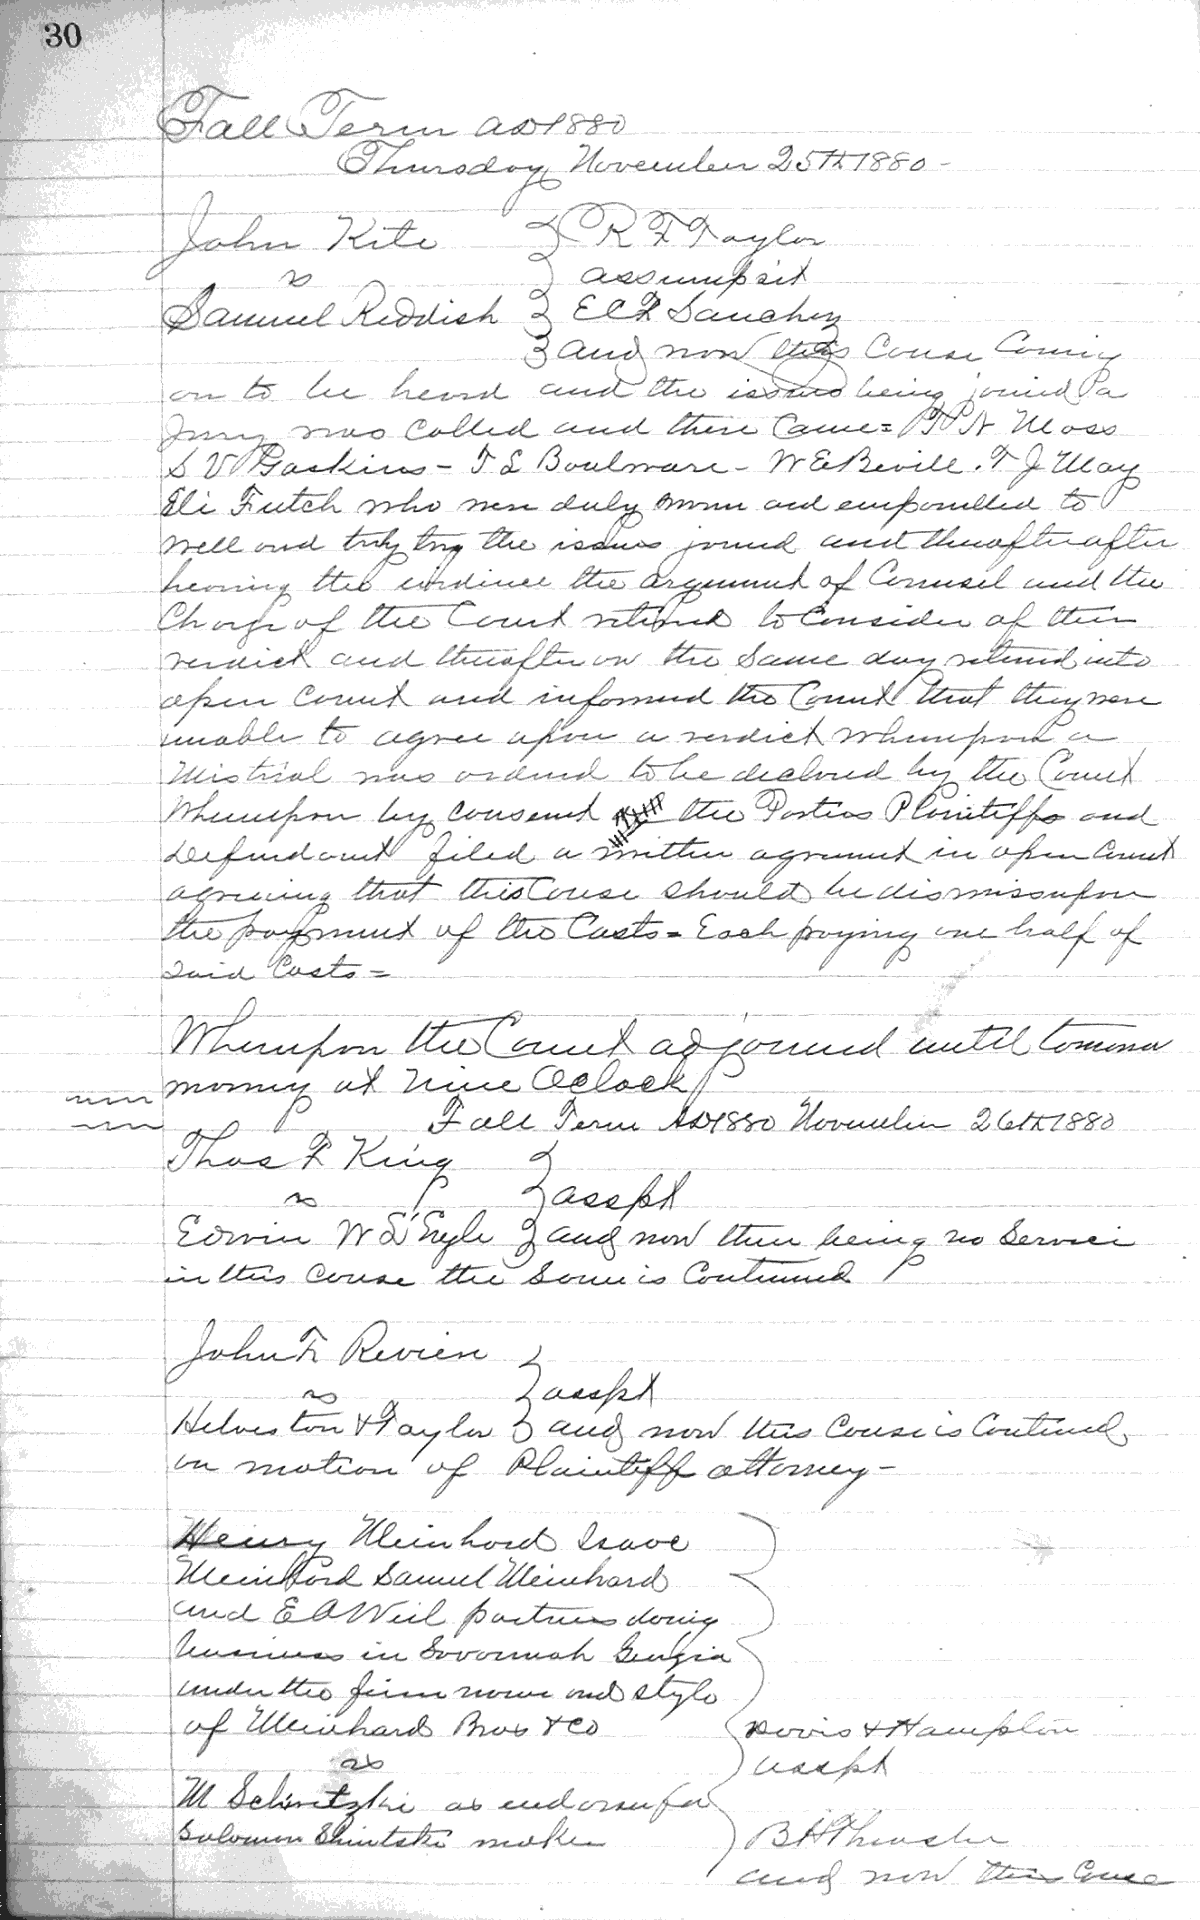 30
Fall Term AD 1880
Thursday November 25th 1880 -
John Kite } R F Taylor
vs } assumpsit
Samuel Reddish } E C F Sanchez
} and now this Cause Coming
on to be heard and the issues being joined a
Jury was called and there Came = W Moss
S V Gaskins - T L Boulware - W E Bevill. T J May
Eli Futch who were duly sworn and empanelled to
well and truly try the issues joined and thereafter after
hearing the evidence the argument of Counsel and the
Charge of the Court retired to Consider of their
verdict and thereafter on the same day returned into
open Court and informed the Court that they were
unable to agree upon a verdict whereupon a
Mistrial was ordered to be declared by the Court
Whereupon by consent the Parties Plaintiffs and
Defendant filed a written agreement in open Court
agreeing that this Cause should be dismiss upon
the payment of the Costs = Each paying one half of
said Costs =
Whereupon the Court adjourned until tomorrow
morning at nine Oclock
Fall Term AD 1880 November 26th 1880
Thos F King }
vs } asspt
Edwin W L'Engle } and now there being no Service
in this Cause the Same is Continued
John F Revien }
vs } asspt
Helveston & Taylor } and now this Cause is Continued
on motion of Plaintiff attorney -
Henry Meinhard Isaac
Meinhard Samuel Meinhard
and E A Weil partners doing
business in Savannah Georgia
under the firm name and style
of Meinhard Bros & Co } Davis & Hampton
vs } asspt
M Schiretzkie as endorser for
Solomon Shiretski maker } B H Thrasher
and now this Cause